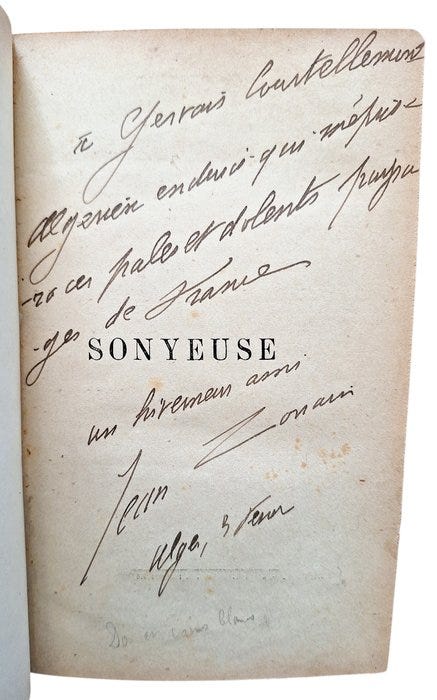 à Gervais Courtellemont
algerien endurci qui méprise
-ra ces pales et dolents paysa
-ges de France
SONYEUSE
un hiverneur ami
Jean Lorrain
Alger, 3